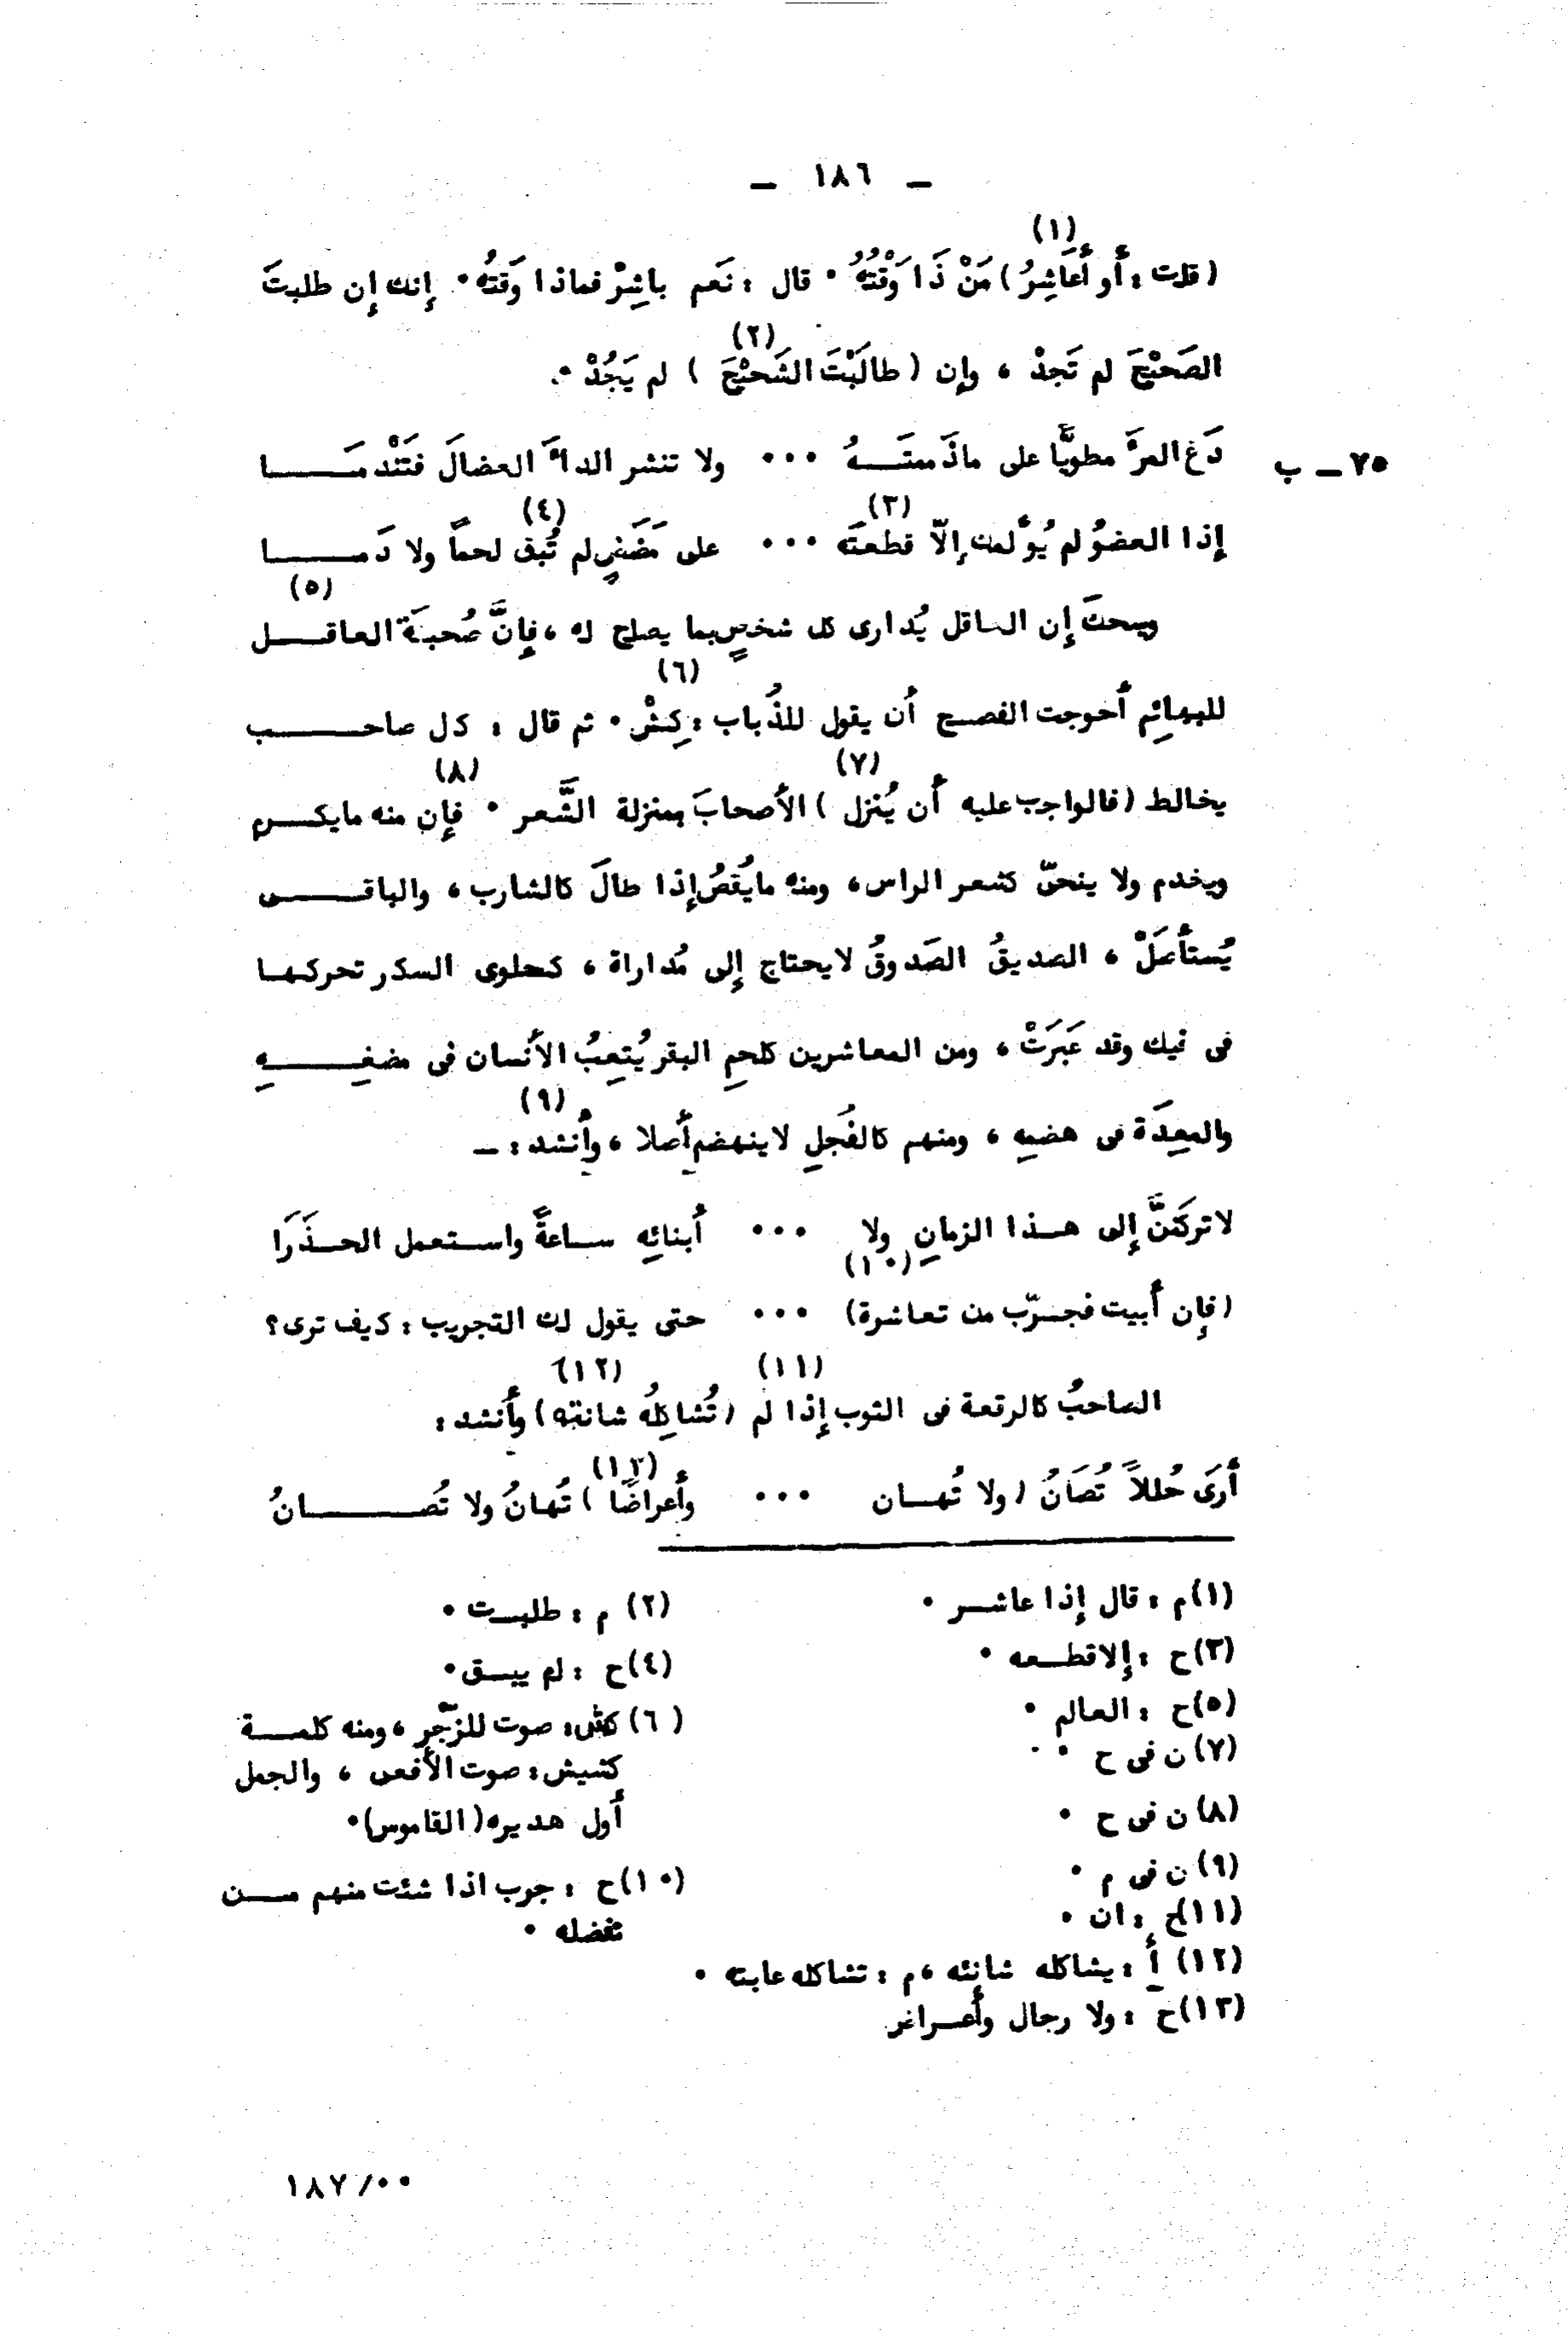 – ١٨٦ –
(١)
(قلت : أو أُعَاشِرُ) مَنْ ذَا وَقْتُهُ . قال : نَعم باشِرْ فماذا وَقتُه . إنك إن طلبتَ
(٢)
الصَحيْحَ لم تَجدْ ، وإن (طالَبْتَ الشَحيْحَ) لم يَجُدْ .
٧٥ – ب
دَع المرَّ مطويًّا على ماذَممتَـــهُ ... ولا تنشر الداءَ العضالَ فتَنْدمَــــا
(٣) (٤)
إذا العضوُ لم يُؤلمك إلاّ قطعتَه ... على مَضَضٍ لم تُبق لحماً ولا دَمــــا
(٥)
ويحكَ إن العاقل يُدارى كل شخصٍ بما يصلح له ، فإنَّ صُحبَة العاقــــل
(٦)
للبهائم أحوجت الفصيح أن يقول للذُباب : كِشْ . ثم قال : كل صاحــــب
(٧) (٨)
يخالط (فالواجب عليه أن يُنزل) الأصحابَ بمنزلة الشَّعر . فإن منه مايكــرم
ويخدم ولا ينحىّ كشعر الراس، ومنه مايُقصُ إذا طالَ كالشارب ، والباقــــى
يُستأصَلْ ، الصديقُ الصَدوقُ لايحتاج إلى مُداراة ، كحلوى السكر تحركهـا
فى فيك وقد عَبَرَتْ ، ومن المعاشرين كلحمِ البقر يُتعِبُ الأنسان فى مضغِــــهِ
(٩)
والمعِدَة فى هضمِه ، ومنهم كالفُجلِ لاينهضم أصلا ، وأنشد : –
لاتركَنَنَّ إلى هــذا الزمانِ ولا ... أبنائِهِ ســاعةً واستعمل الحــذَرَا
(١٠)
(فإن أبيت فجــرّب من تعاشرة) ... حتى يقول لك التجريب : كيف ترى؟
(١١) (١٢)
الصاحبُ كالرقعة فى الثوب إذا لم (تُشاكِلُه شانته) وأنشد :
(١٣)
أرَى حُللاً تُصَانُ (ولا تُهــان ... وأعراضًا) تُهانُ ولا تُصــــــانُ
(١) م : قال إذا عاشــر .
(٢) م : طلبــت .
(٣) ح : إلا قطــعه .
(٤) ح : لم يبــق .
(٥) ح : العالم .
(٦) كش : صوت للزجّر ، ومنه كلمــة
كشيش : صوت الأفعى ، والجمل
أول هديره (القاموس) .
(٧) ن فى ح .
(٨) ن فى ح .
(٩) ن فى م .
(١٠) ح : جرب اذا شئت منهم مــن
تفضله .
(١١) ح : ان .
(١٢) أ : يشاكله شانئه ، م : تشاكله عابته .
(١٣) ح : ولا رجال وأعــراض
١٨٧/٠٠